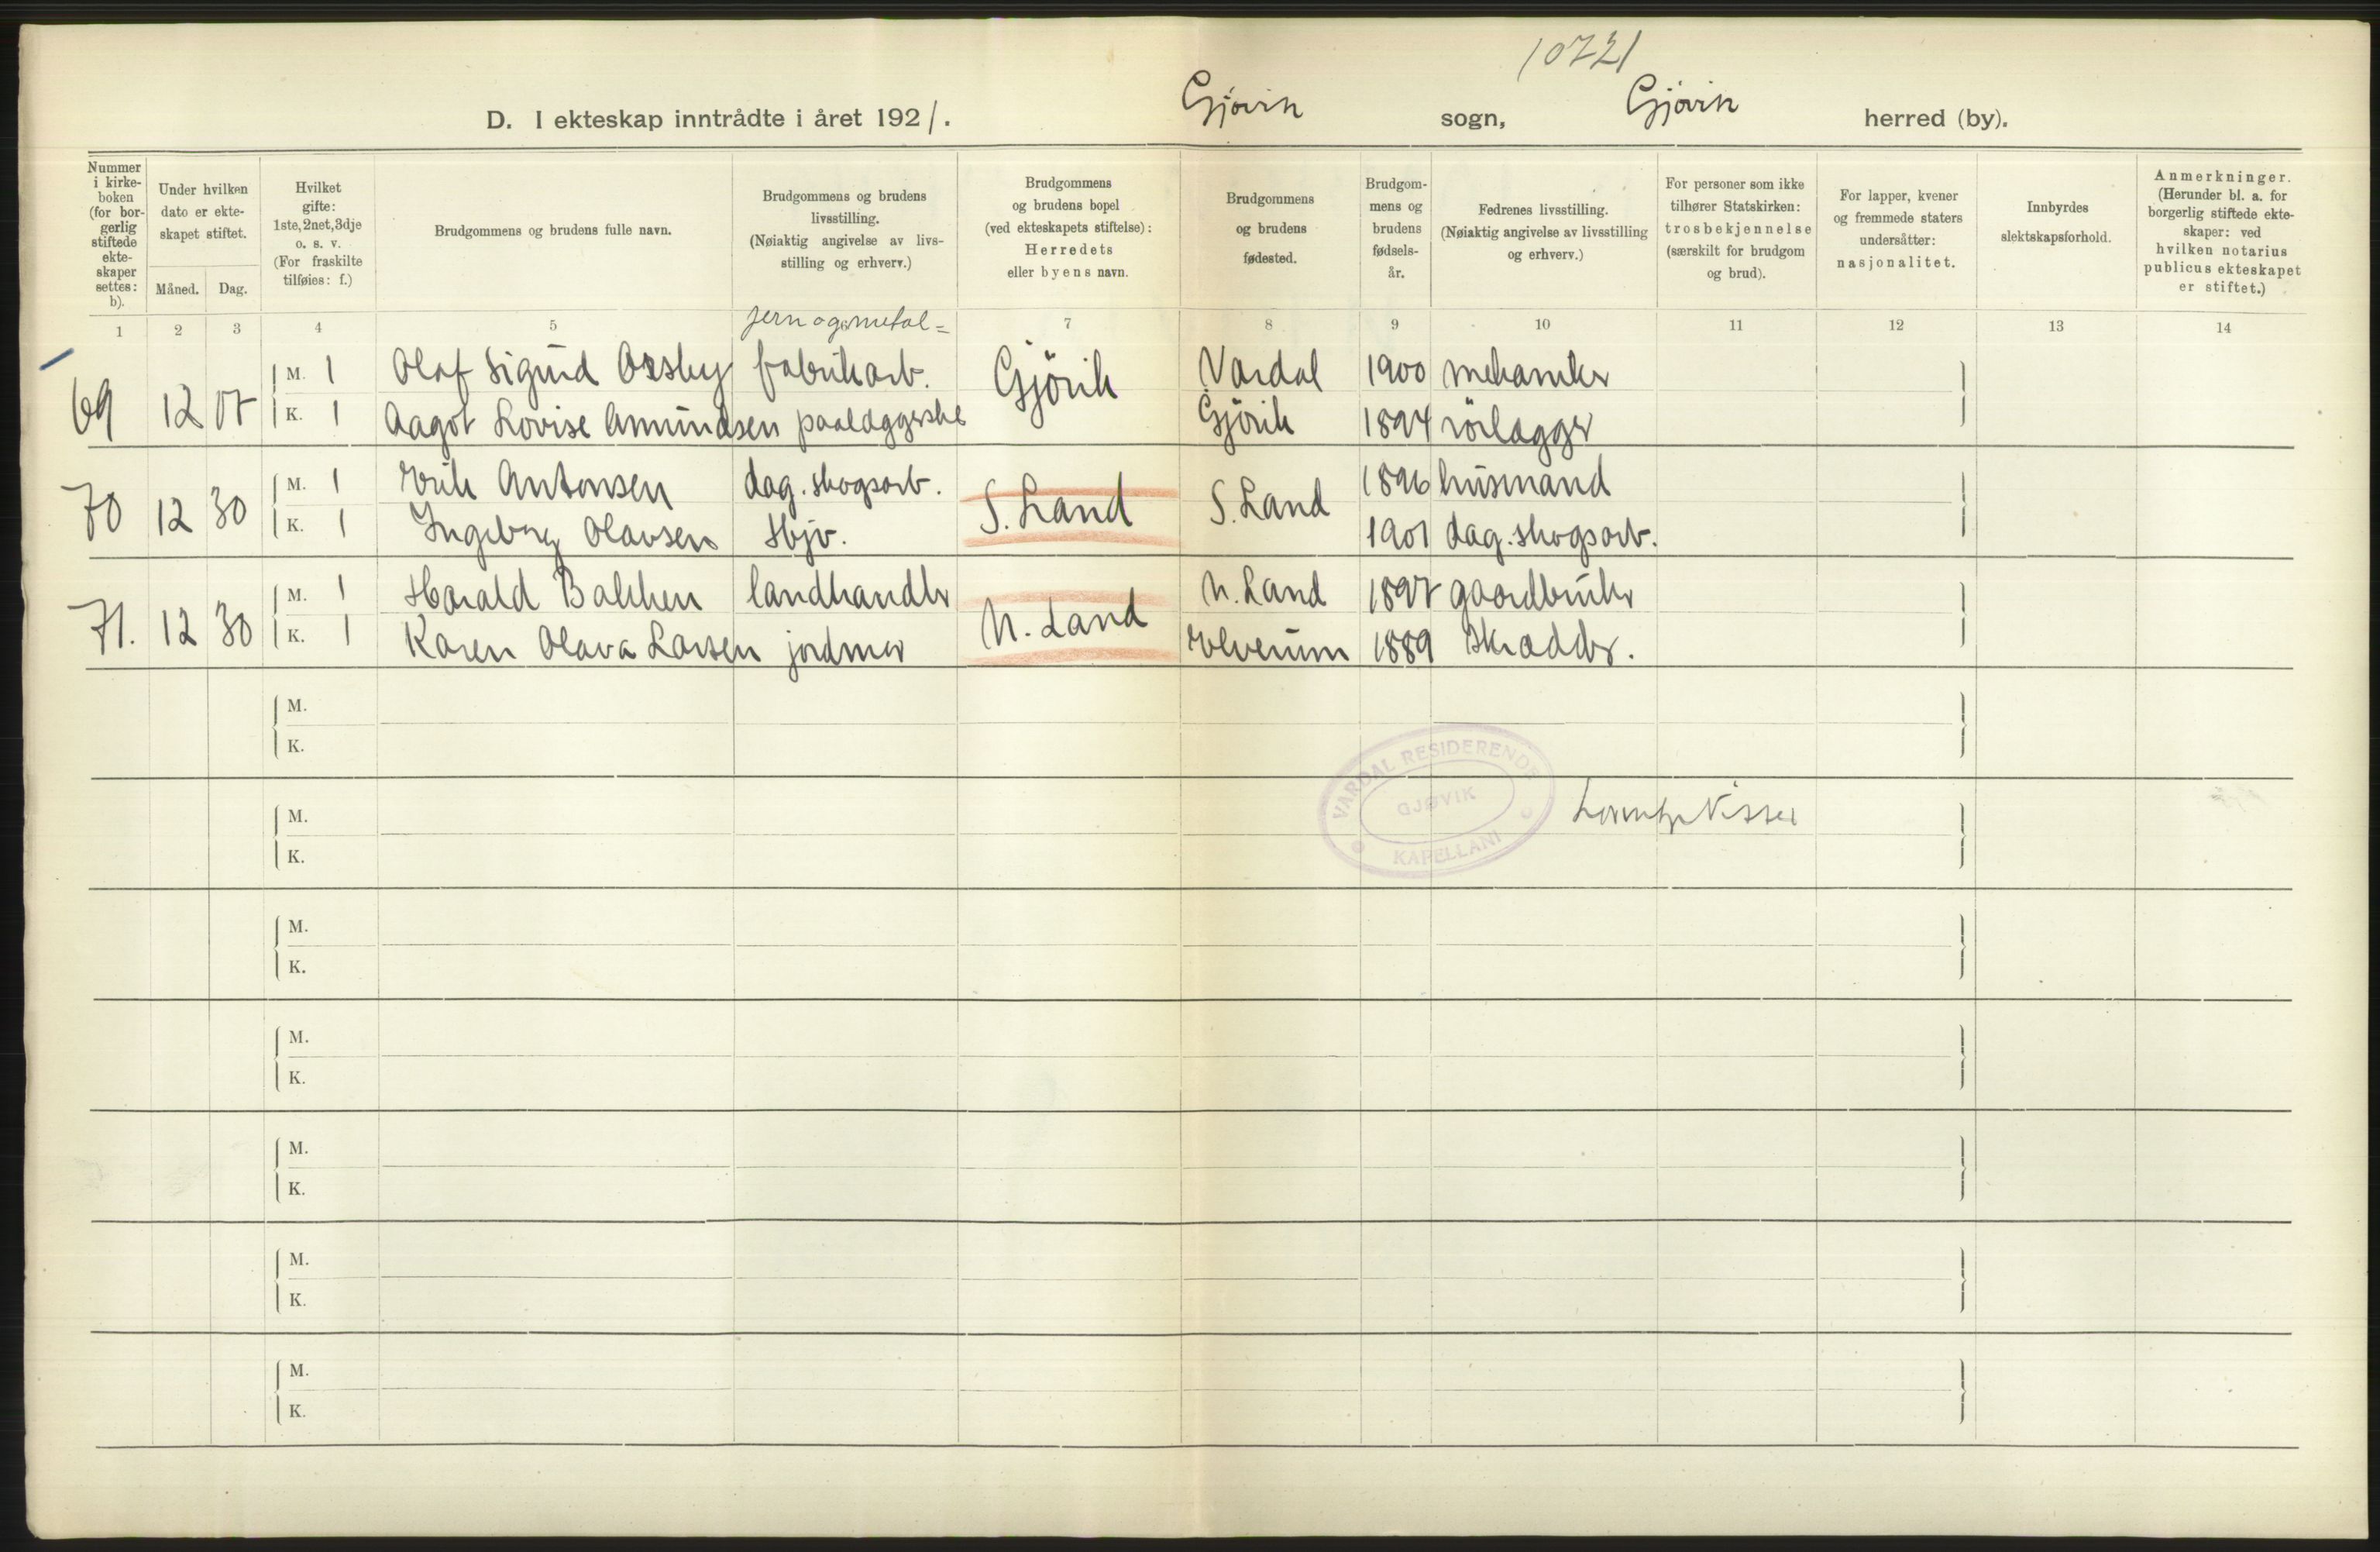 10721
D. I ekteskap inntrådte i året 1921. Gjøvik sogn, Gjøvik herred (by).
Nummer i kirkeboken (for borgerlig stiftede ekteskaper settes: b).
Under hvilken dato er ekteskapet stiftet.
Måned. Dag.
Hvilket gifte: 1ste, 2net, 3dje o. s. v. (For fraskilte tilføies: f.)
Brudgommens og brudens fulle navn.
Brudgommens og brudens livsstilling. (Nøiaktig angivelse av livsstilling og erhverv.)
Brudgommens og brudens bopel (ved ekteskapets stiftelse): Herredets eller byens navn.
Brudgommens og brudens fødested.
Brudgommens og brudens fødselsår.
Fedrenes livsstilling. (Nøiaktig angivelse av livsstilling og erhverv.)
For personer som ikke tilhører Statskirken: trosbekjennelse (særskilt for brudgom og brud).
For lapper, kvener og fremmede staters undersåtter: nasjonalitet.
Innbyrdes slektskapsforhold.
Anmerkninger. (Herunder bl. a. for borgerlig stiftede ekteskaper: ved hvilken notarius publicus ekteskapet er stiftet.)
1 2 3 4 5 6 7 8 9 10 11 12 13 14
jern og metal=
69 12 M. 1 Olaf Sigurd fabrikarb. Gjövik Vardal 1900 mekaniker
K. 1 Aagot Lovise Amundsen paalæggerske Gjövik 1894 rörlægger
70 12 30 M. 1 Erik Antonsen dag. skogsarb. S. Land S. Land 1896 husmand
K. 1 Ingeborg Olavsen Hjv. 1901 dag. skogsarb.
71. 12 30 M. 1 Harald Bakken landhandler N. Land N. Land gaardbruker
K. 1 Karen Olava Larsen jordmor Elverum 1889 Skrædder.
M.
K.
VARDAL RESIDERENDE KAPELLANI
GJØVIK
M.
K.
M.
K.
M.
K.
M.
K.
M.
K.
M.
K.